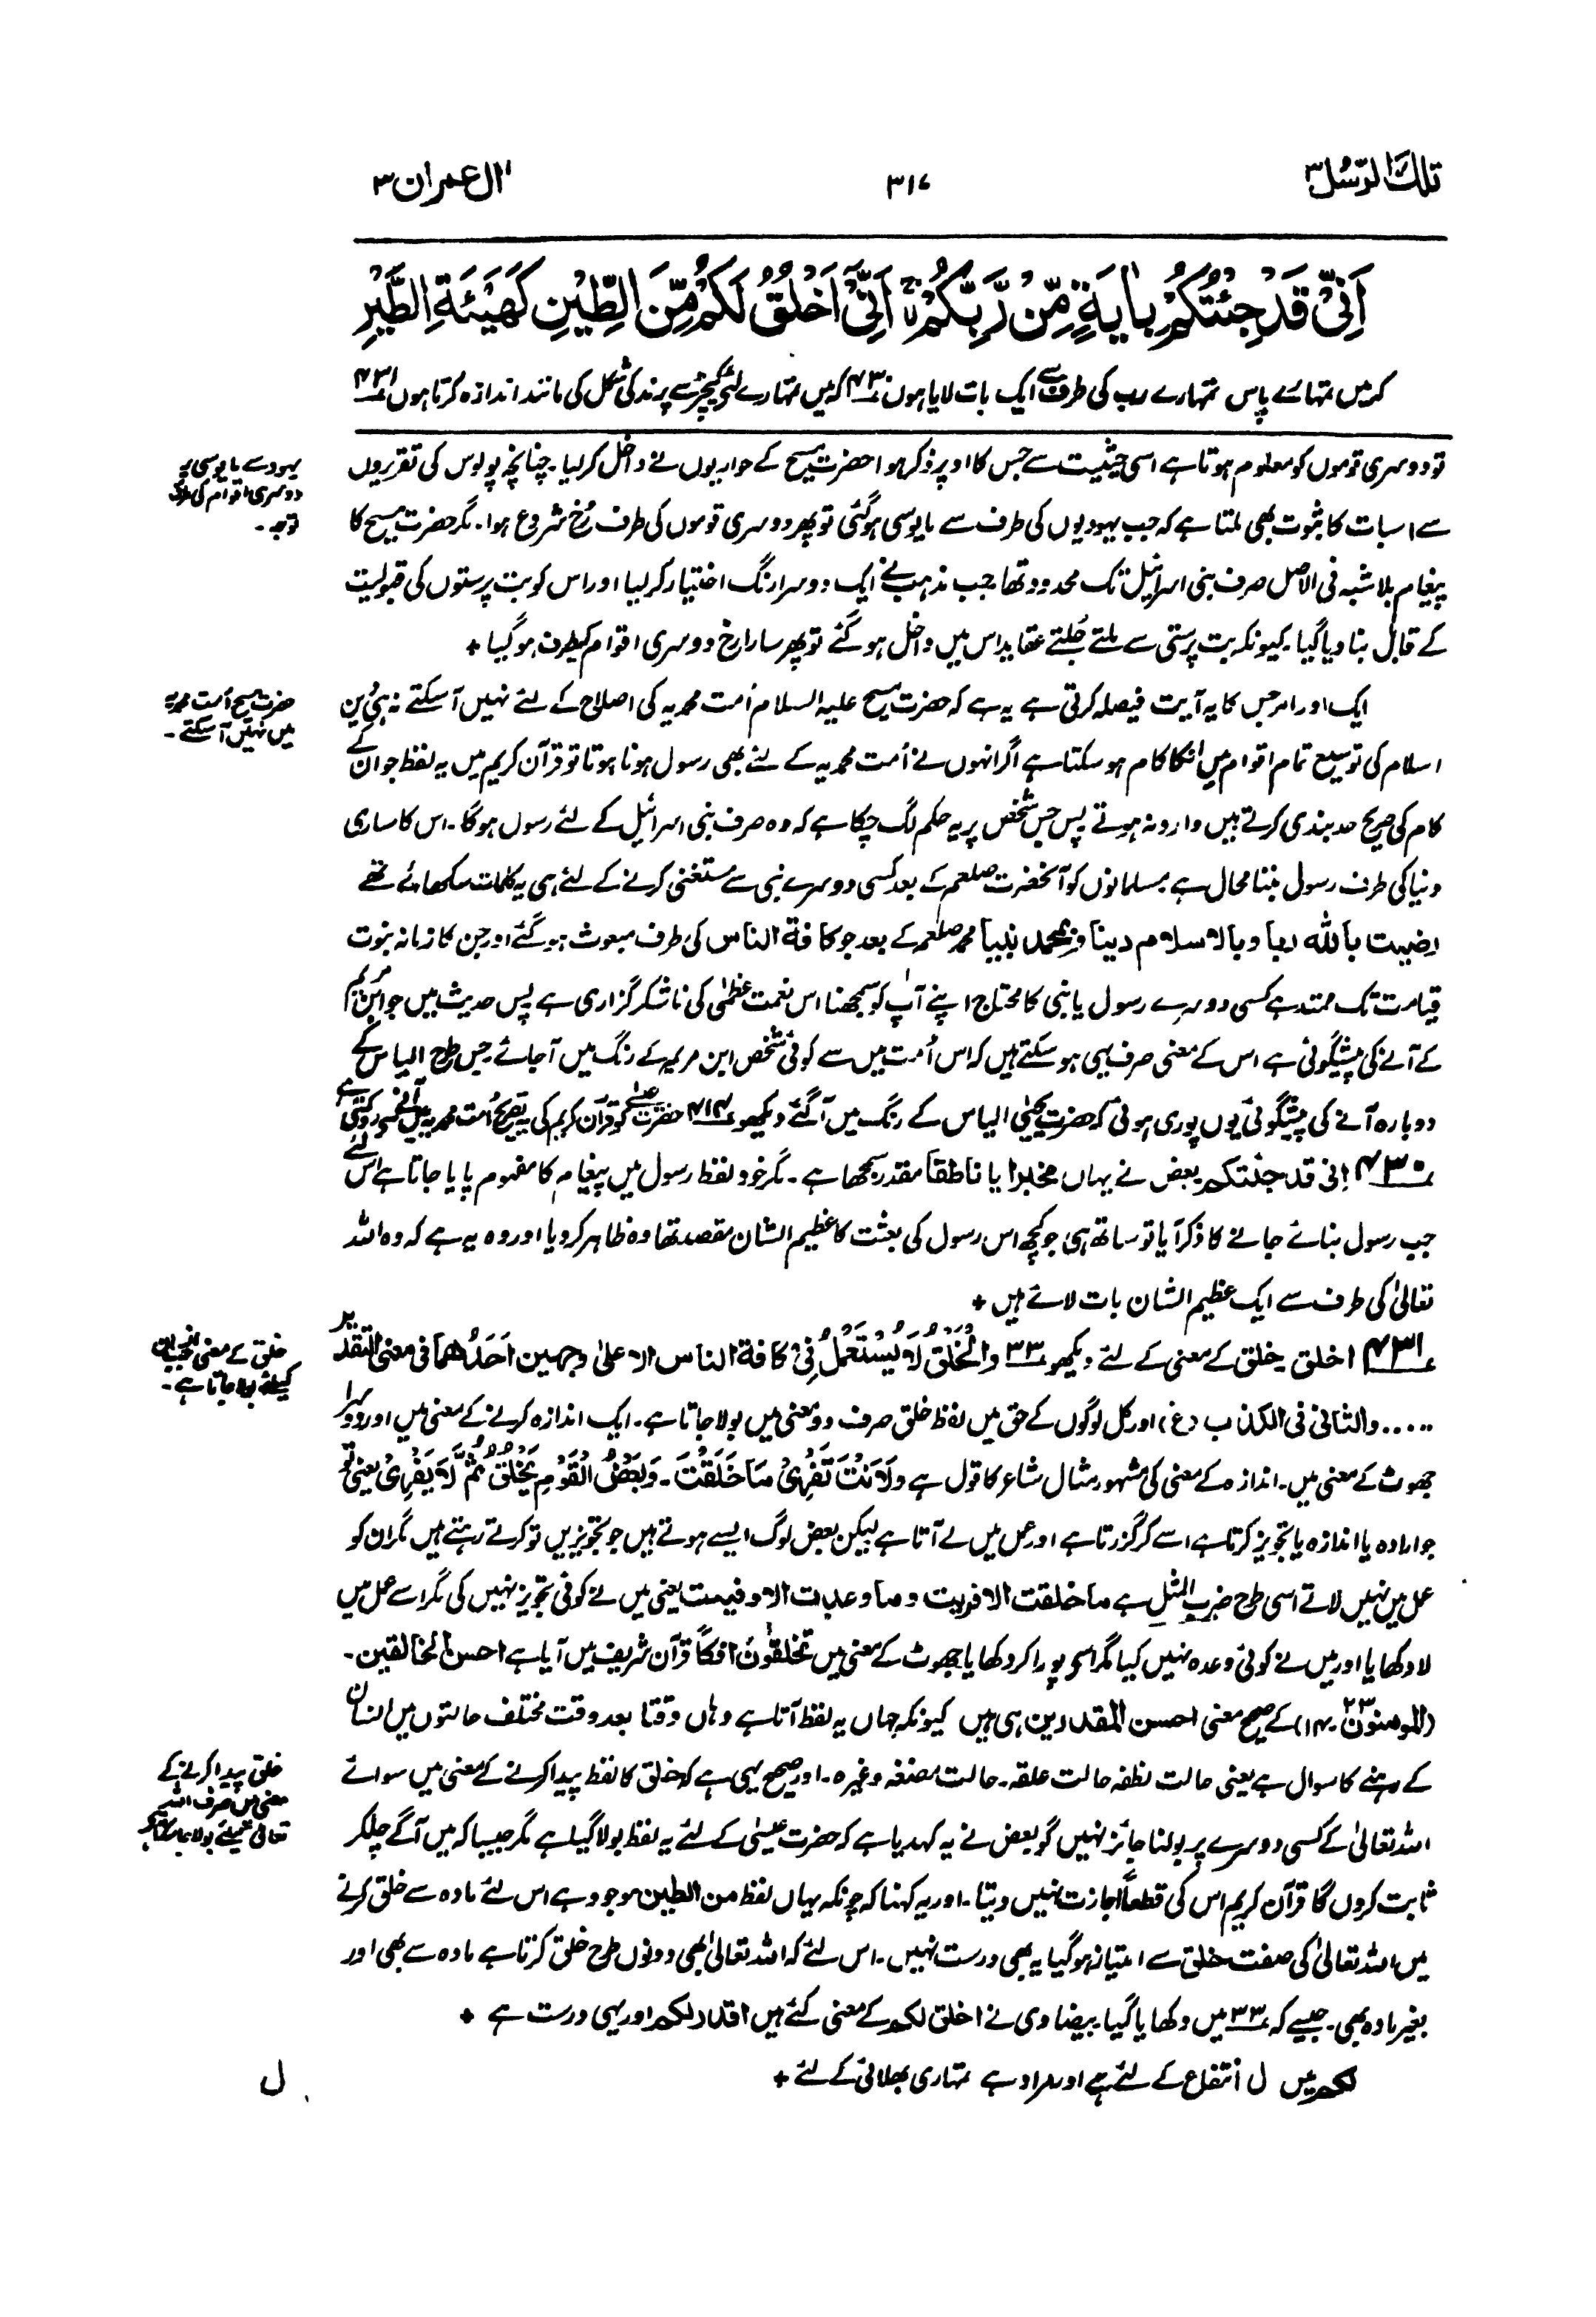 تلك الرّسل ۳
۳۱۷
اٰل عمران ۳
اَنِّیْ قَدْ جِئْتُكُمْ بِاٰیَةٍ مِّنْ رَّبِّكُمْ ۙ اَنِّیْۤ اَخْلُقُ لَكُمْ مِّنَ الطِّیْنِ كَهَیْئَةِ الطَّیْرِ
کہ میں تمہارے پاس تمہارے رب کی طرف سے ایک بات لایا ہوں ۴۳۰ کہ میں تمہارے لئے کیچڑ سے پرند کی شکل کی مانند اندازہ کرتا ہوں ۴۳۱
تو دوسری قوموں کو معلوم ہوتا ہے اسی حیثیت سے جس کا اوپر ذکر ہوا حضرت مسیح کے حواریوں نے داخل کر لیا۔ چنانچہ پولوس کی تقریروں
یہود سے مایوسی پر
دوسری اقوام کی طرف
توجہ۔
سے اسبات کا ثبوت بھی ملتا ہے کہ جب یہودیوں کی طرف سے مایوسی ہوگئی تو پھر دوسری قوموں کی طرف رخ شروع ہوا۔ مگر حضرت مسیح کا
پیغام بلاشبہ فی الاصل صرف بنی اسرائیل تک محدود تھا جب مذہب نے ایک دوسرا رنگ اختیار کر لیا اور اس کو بت پرستوں کی قبولیت
کے قابل بنا دیا گیا۔ کیونکہ بت پرستی سے ملتے جلتے عقاید اس میں داخل ہو گئے تو پھر سارا رخ دوسری اقوام کیطرف ہو گیا +
ایک اور امر جس کا یہ آیت فیصلہ کرتی ہے یہ ہے کہ حضرت مسیح علیہ السلام اُمت محمدیہ کی اصلاح کے لئے نہیں آ سکتے نہ ہی دین
حضرت مسیح اُمت محمدیہ
میں نہیں آ سکتے۔
اسلام کی توسیع تمام اقوام میں انکا کام ہو سکتا ہے اگر انہوں نے اُمت محمدیہ کے لئے بھی رسول ہونا ہوتا تو قرآن کریم میں یہ لفظ جو ان کے
کام کی صریح حد بندی کرتے ہیں وارد نہ ہوتے پس جس شخص پر یہ حکم لگ چکا ہے کہ وہ صرف بنی اسرائیل کے لئے رسول ہوگا۔ اس کا ساری
دنیا کی طرف رسول بننا محال ہے مسلمانوں کو آنحضرت صلعم کے بعد کسی دوسرے نبی سے مستغنی کرنے کے لئے ہی یہ کلمات سکھائے تھے
رضیت باللہ ربا وبالاسلام دینا وبمحمد نبیا محمد صلعم کے بعد جو کافة الناس کی طرف مبعوث ہو گئے اور جن کا زمانہ نبوت
قیامت تک ممتد ہے کسی دوسرے رسول یا نبی کا محتاج اپنے آپ کو سمجھنا اس نعمت عظمٰی کی ناشکر گزاری ہے پس حدیث میں جو ابن مریم
کے آنے کی پیشگوئی ہے اس کے معنی صرف یہی ہو سکتے ہیں کہ اس اُمت میں سے کوئی شخص ابن مریم کے رنگ میں آجائے جس طرح الیاس کے
دوبارہ آنے کی پیشگوئی یوں پوری ہوئی کہ حضرت یحییٰ الیاس کے رنگ میں آگئے دیکھو ۴۱۴ حضرت عیسےٰ کو قرآن کریم کی یہ تصریح اُمت محمدیہ میں آنے سے روکتی ہے
۴۳۰ انی قد جئتکم بعض نے یہاں مخبرا یا ناطقاً مقدر سمجھا ہے۔ مگر خود لفظ رسول میں پیغام کا مفہوم پایا جاتا ہے اس لئے
جب رسول بنائے جانے کا ذکر آیا تو ساتھ ہی جو کچھ اس رسول کی بعثت کا عظیم الشان مقصد تھا وہ ظاہر کر دیا اور وہ یہ ہے کہ وہ اللہ
تعالیٰ کی طرف سے ایک عظیم الشان بات لائے ہیں +
۴۳۱ اخلق۔ خلق کے معنی کے لئے دیکھو ۳۳ وَالْخَلْقُ لَا یُسْتَعْمَلُ فِیْ کافة الناس الا علیٰ وجہین اَحَدُہما فی معنی التقدیر
خلق کے معنی
کیلئے بولا جاتا ہے۔
..... والثانی فی الکذب (غ) اور کل لوگوں کے حق میں لفظ خلق صرف دو معنی میں بولا جاتا ہے۔ ایک اندازہ کرنے کے معنی میں اور دوسرا
جھوٹ کے معنی میں۔ اندازہ کے معنی کی مشہور مثال شاعر کا قول ہے وَلَاَنْتَ تَفْرِیْ مَا خَلَقْتَ۔ وَبَعْضُ الْقَوْمِ یَخْلُقُ ثُمَّ لَا یَفْرِیْ یعنی تو
جو ارادہ یا اندازہ یا تجویز کرتا ہے اسے کر گزرتا ہے اور عمل میں لے آتا ہے لیکن بعض لوگ ایسے ہوتے ہیں جو تجویزیں تو کرتے رہتے ہیں مگر ان کو
عمل میں نہیں لاتے اسی طرح ضرب المثل ہے ما خلقت الا فریت وما وعدت الا وفیت یعنی میں نے کوئی تجویز نہیں کی مگر اسے عمل میں
لا دکھایا اور میں نے کوئی وعدہ نہیں کیا مگر اسے پورا کر دکھایا جھوٹ کے معنی میں تخلقون افکاً قرآن شریف میں آیا ہے احسن الخالقین۔
(المومنون ۲۳۔۱۴) کے صحیح معنی احسن المقدرین ہی ہیں کیونکہ جہاں یہ لفظ آتا ہے وہاں وقتا بعد وقت مختلف حالتوں میں انسان
کے رہنے کا سوال ہے یعنی حالت نطفہ حالت علقہ۔ حالت مضغہ وغیرہ۔ اور صحیح یہی ہے کہ خلق کا لفظ پیدا کرنے کے معنی میں سوائے
خلق پیدا کرنے کے
معنی میں صرف اللہ
تعالیٰ کیلئے بولا جا سکتا ہے
اللہ تعالیٰ کے کسی دوسرے پر بولنا جائز نہیں گو بعض نے یہ کہدیا ہے کہ حضرت عیسیٰ کے لئے یہ لفظ بولا گیا ہے مگر جیسا کہ میں آگے چلکر
ثابت کروں گا قرآن کریم اس کی قطعاً اجازت نہیں دیتا۔ اور یہ کہنا کہ چونکہ یہاں لفظ من الطین موجود ہے اس لئے مادہ سے خلق کرنے
میں اللہ تعالیٰ کی صفت خلق سے امتیاز ہو گیا یہ بھی درست نہیں۔ اس لئے کہ اللہ تعالیٰ بھی دونوں طرح خلق کرتا ہے مادہ سے بھی اور
بغیر مادہ بھی۔ جیسے کہ ۳۳ میں دکھایا گیا۔ بیضاوی نے اخلق لکم کے معنی کئے ہیں اقدر لکم اور یہی درست ہے +
لکم میں ل انتفاع کے لئے ہے اور مراد ہے تمہاری بھلائی کے لئے +
ل